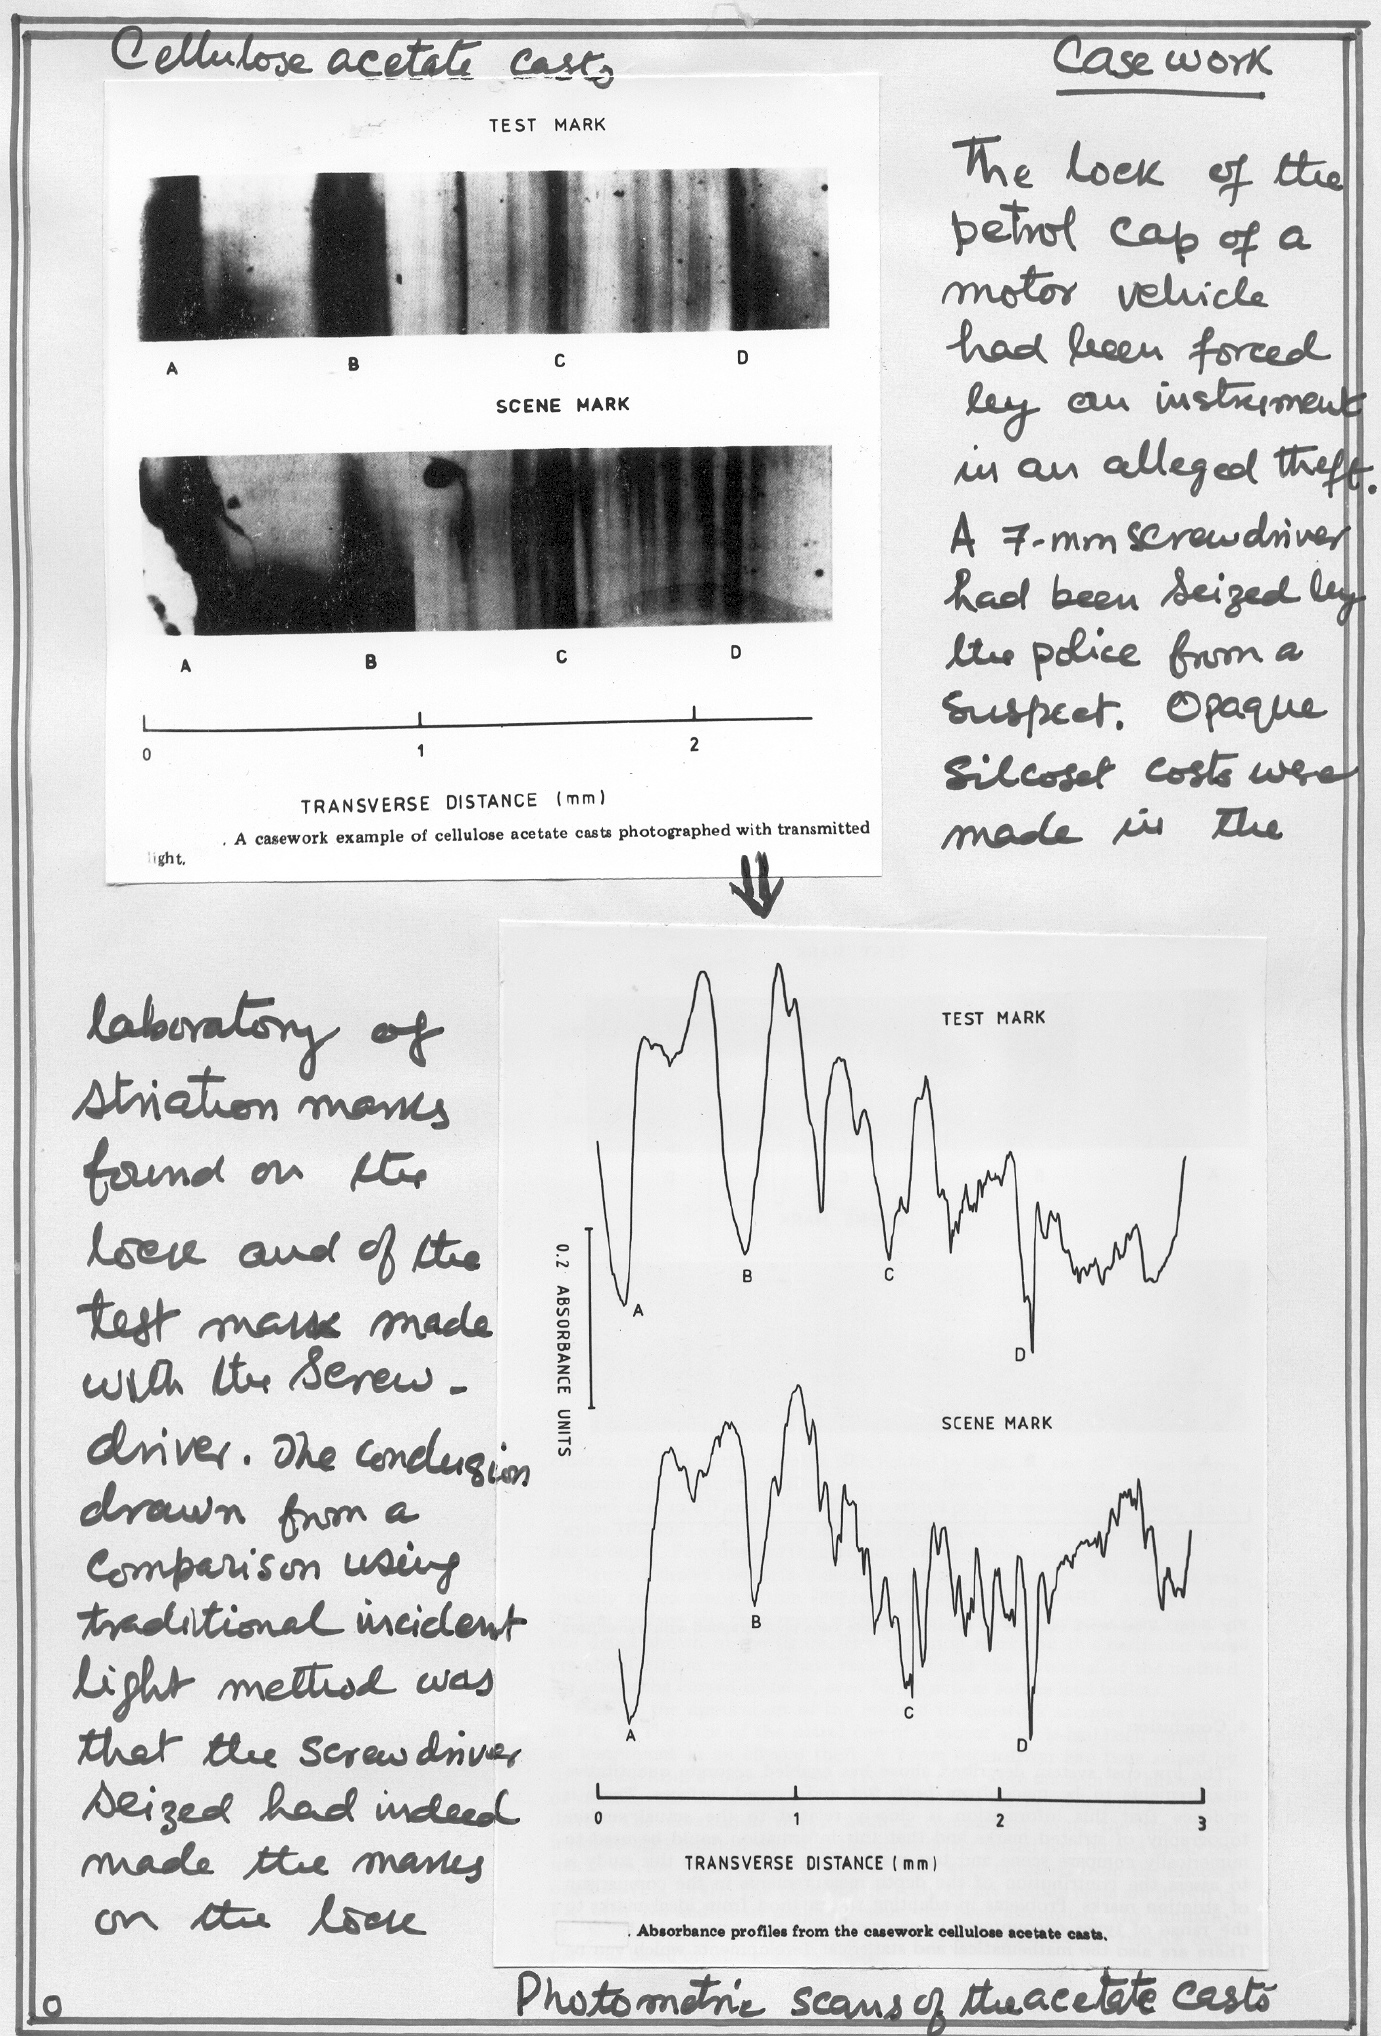 Cellulose acetate casts
Case work
TEST MARK
A B C D
SCENE MARK
A B C D
0 1 2
TRANSVERSE DISTANCE (mm)
. A casework example of cellulose acetate casts photographed with transmitted
light.
The lock of the
petrol cap of a
motor vehicle
had been forced
by an instrument
in an alleged theft.
A 7-mm screwdriver
had been seized by
the police from a
suspect. Opaque
Silcoset casts were
made in the
laboratory of
striation marks
found on the
lock and of the
test mark made
with the screw-
driver. The conclusion
drawn from a
comparison using
traditional incident
light method was
that the screwdriver
seized had indeed
made the marks
on the lock
TEST MARK
A B C D
0.2 ABSORBANCE UNITS
SCENE MARK
A B C D
0 1 2 3
TRANSVERSE DISTANCE (mm)
. Absorbance profiles from the casework cellulose acetate casts.
Photometric scans of the acetate casts
0